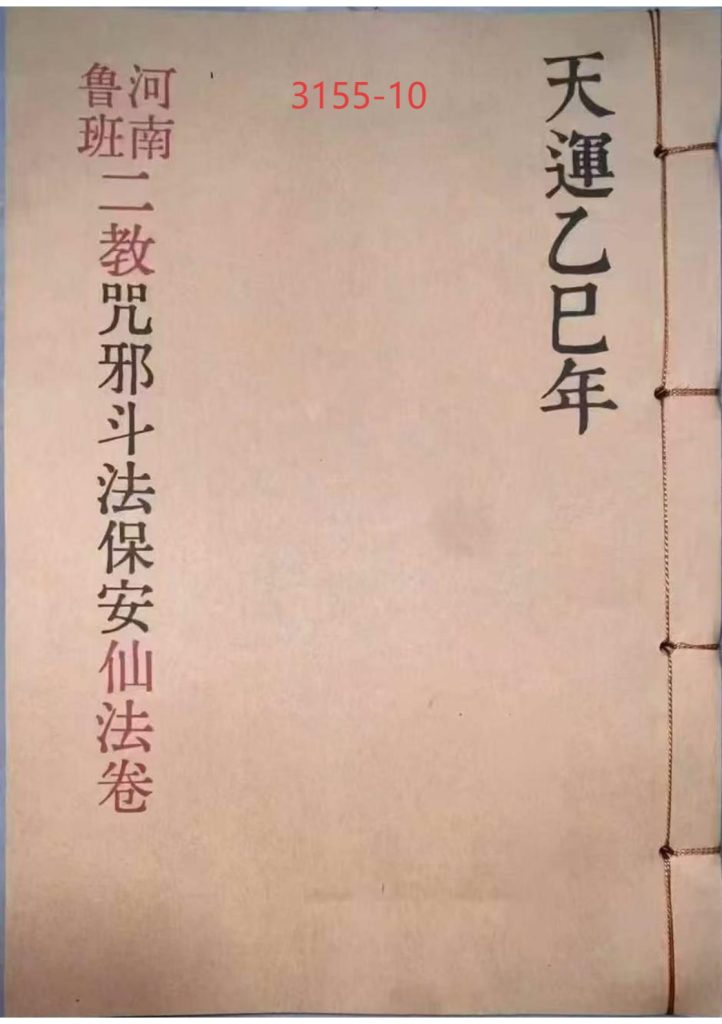 3155-10
天運乙巳年
河南
鲁班
二教咒邪斗法保安仙法卷